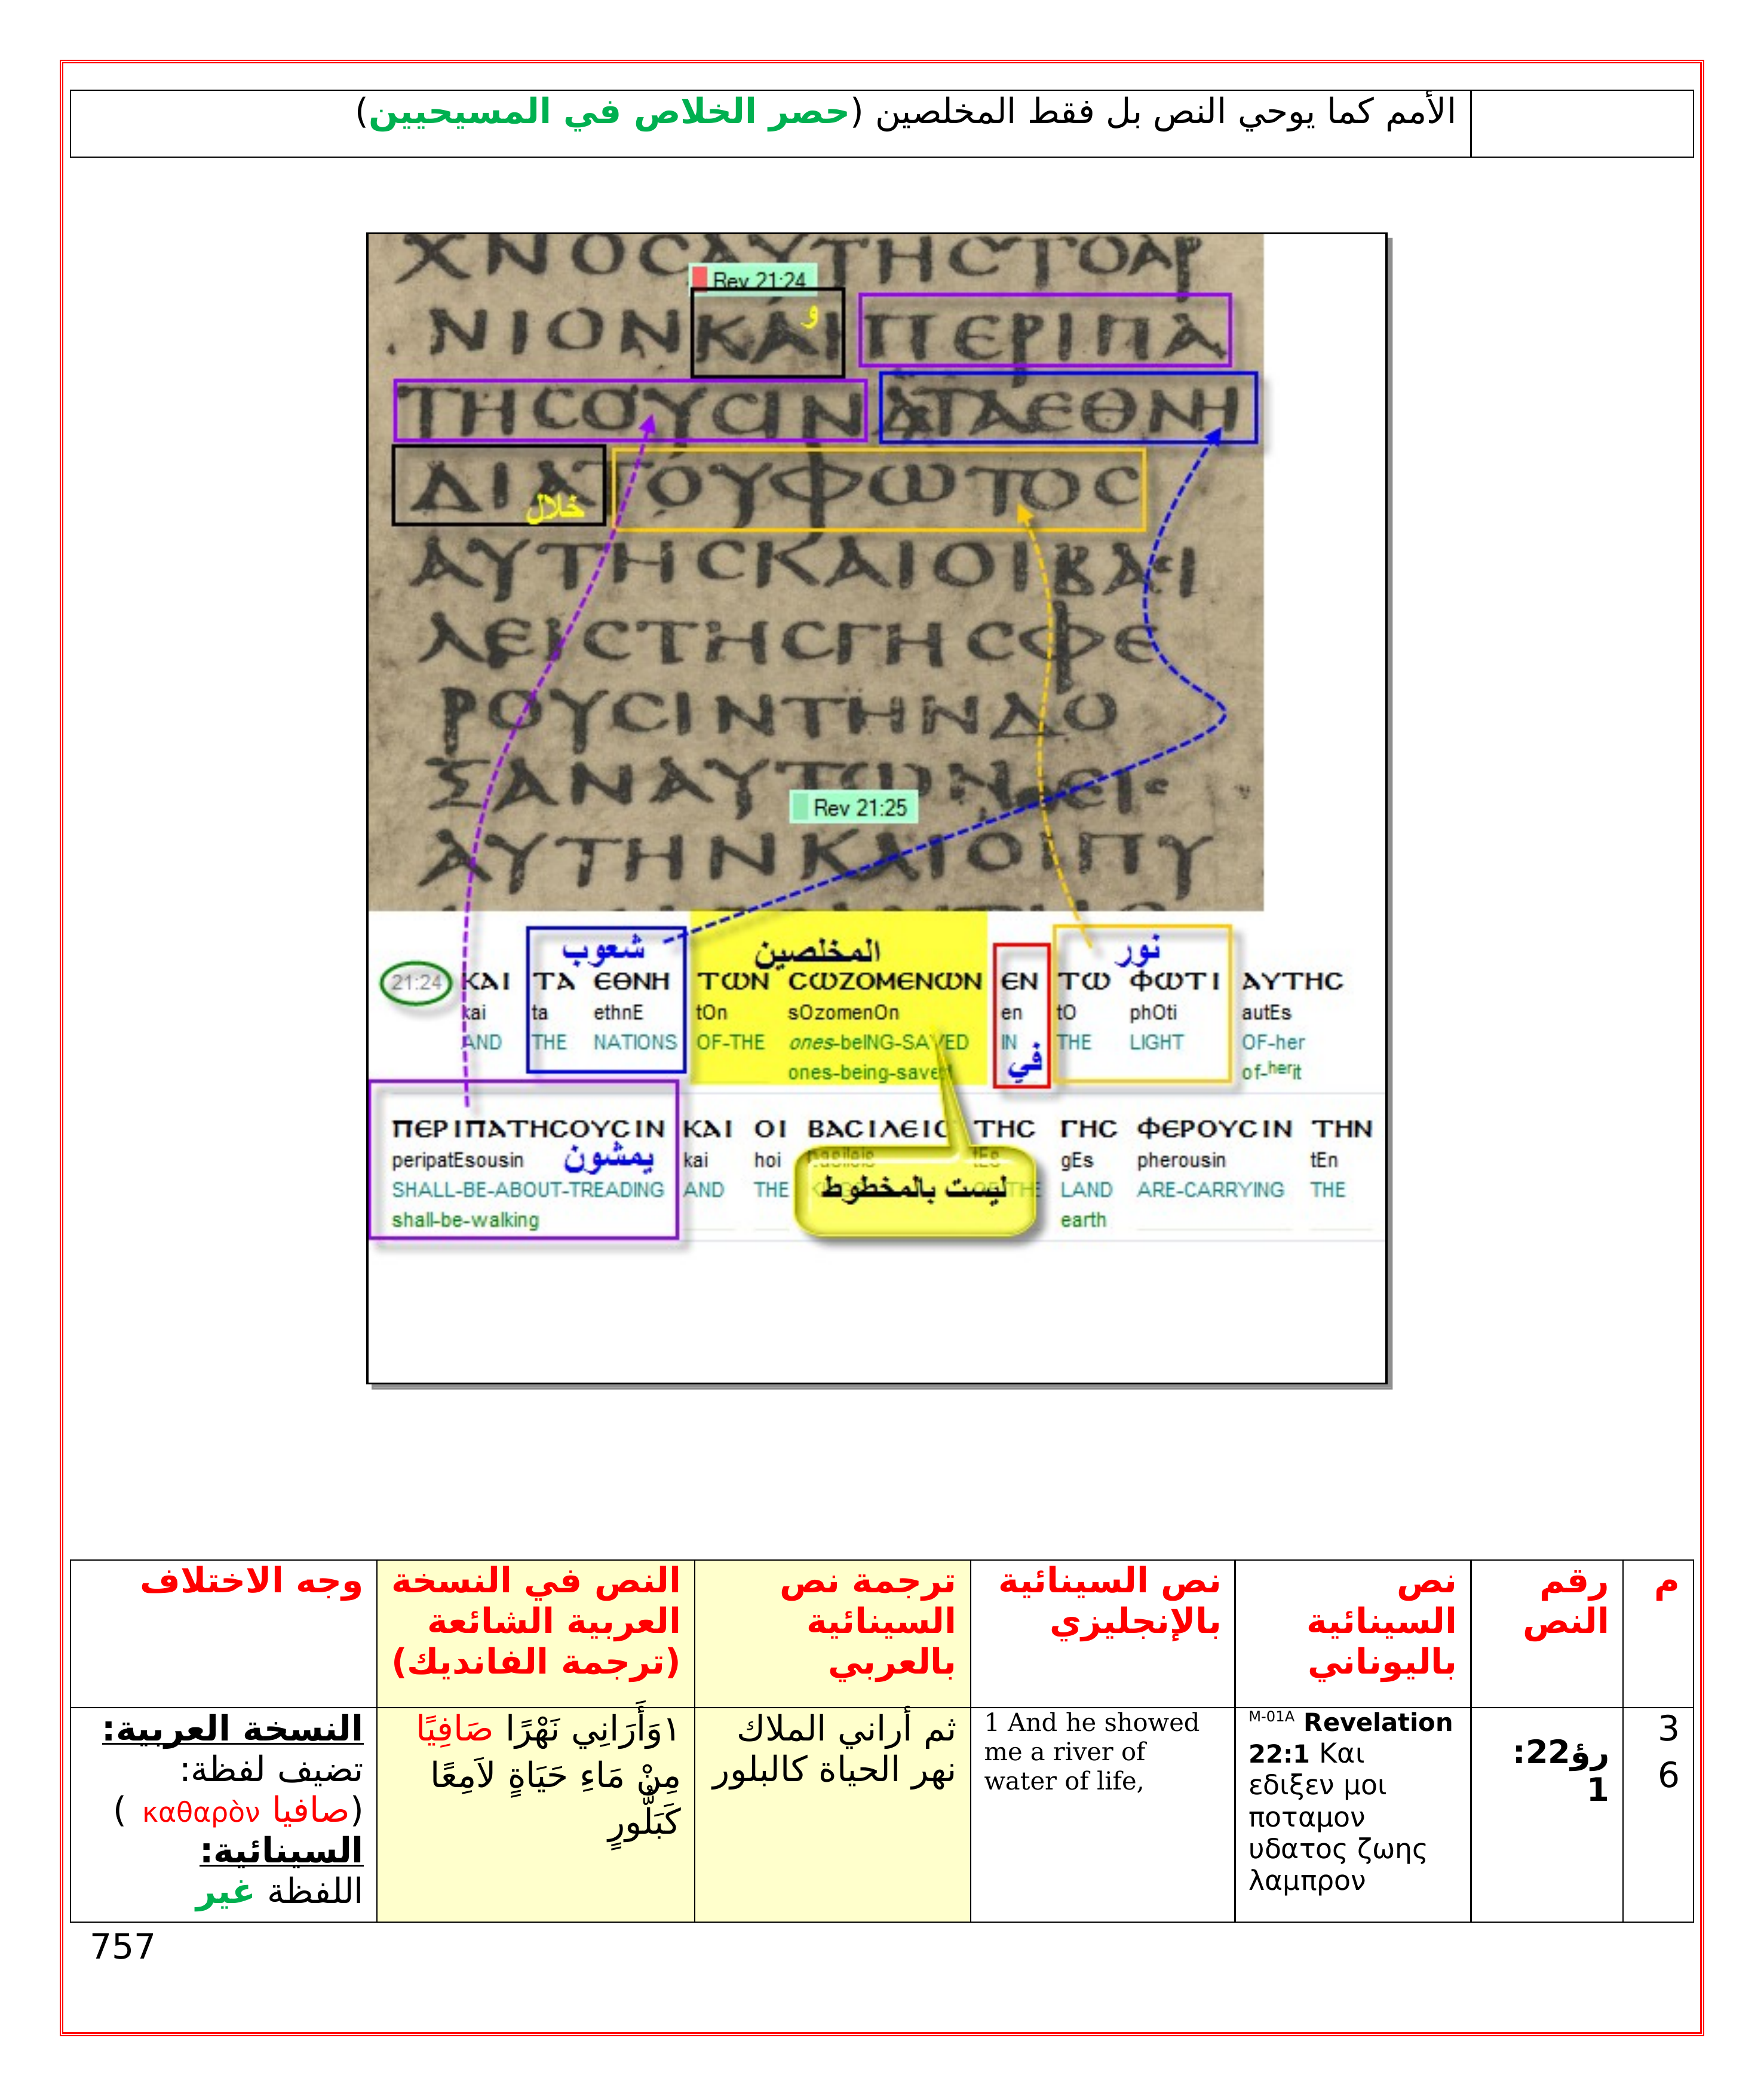 الأمم كما يوحي النص بل فقط المخلصين (حصر الخلاص في المسيحيين)
ΧΝΟCΑΥΤΗCΤΟΑΡ
Rev 21:24
ΝΙΟΝΚΑΙΠΕΡΙΠΑ
و
ΤΗCΟΥCΙΝ ΤΑΕΘΝΗ
ΔΙΑΤΟΥΦΩΤΟC
خلال
ΑΥΤΗCΚΑΙΟΙΒΑCΙ
ΛΕΙCΤΗCΓΗCΦΕ
ΡΟΥCΙΝΤΗΝΔΟ
ΞΑΝΑΥΤΩΝ ΕΙC
Rev 21:25
ΑΥΤΗΝΚΑΙΟΙΠΥ
شعوب المخلصين نور
21:24 ΚΑΙ ΤΑ ΕΘΝΗ ΤΩΝ CΩΖΟΜΕΝΩΝ ΕΝ ΤΩ ΦΩΤΙ ΑΥΤΗC
kai ta ethnE tOn sOzomenOn en tO phOti autEs
AND THE NATIONS OF-THE ones-beING-SAVED IN THE LIGHT OF-her
ones-being-saved في of-herit
ΠΕΡΙΠΑΤΗCΟΥCΙΝ ΚΑΙ ΟΙ ΒΑCΙΛΕΙC ΤΗC ΓΗC ΦΕΡΟΥCΙΝ ΤΗΝ
peripatEsousin يمشون kai hoi basileis tEs gEs pherousin tEn
SHALL-BE-ABOUT-TREADING AND THE ليست بالمخطوط LAND ARE-CARRYING THE
shall-be-walking earth
م
رقم
النص
نص
السينائية
باليوناني
نص السينائية
بالإنجليزي
ترجمة نص
السينائية
بالعربي
النص في النسخة
العربية الشائعة
(ترجمة الفانديك)
وجه الاختلاف
3
6
رؤ22:
1
M-01A Revelation
22:1 Και
εδιξεν μοι
ποταμον
υδατος ζωης
λαμπρον
1 And he showed
me a river of
water of life,
ثم أراني الملاك
نهر الحياة كالبلور
١وَأَرَانِي نَهْرًا صَافِيًا
مِنْ مَاءِ حَيَاةٍ لاَمِعًا
كَبَلُّورٍ
النسخة العربية:
تضيف لفظة:
(صافيا καθαρὸν )
السينائية:
اللفظة غير
757